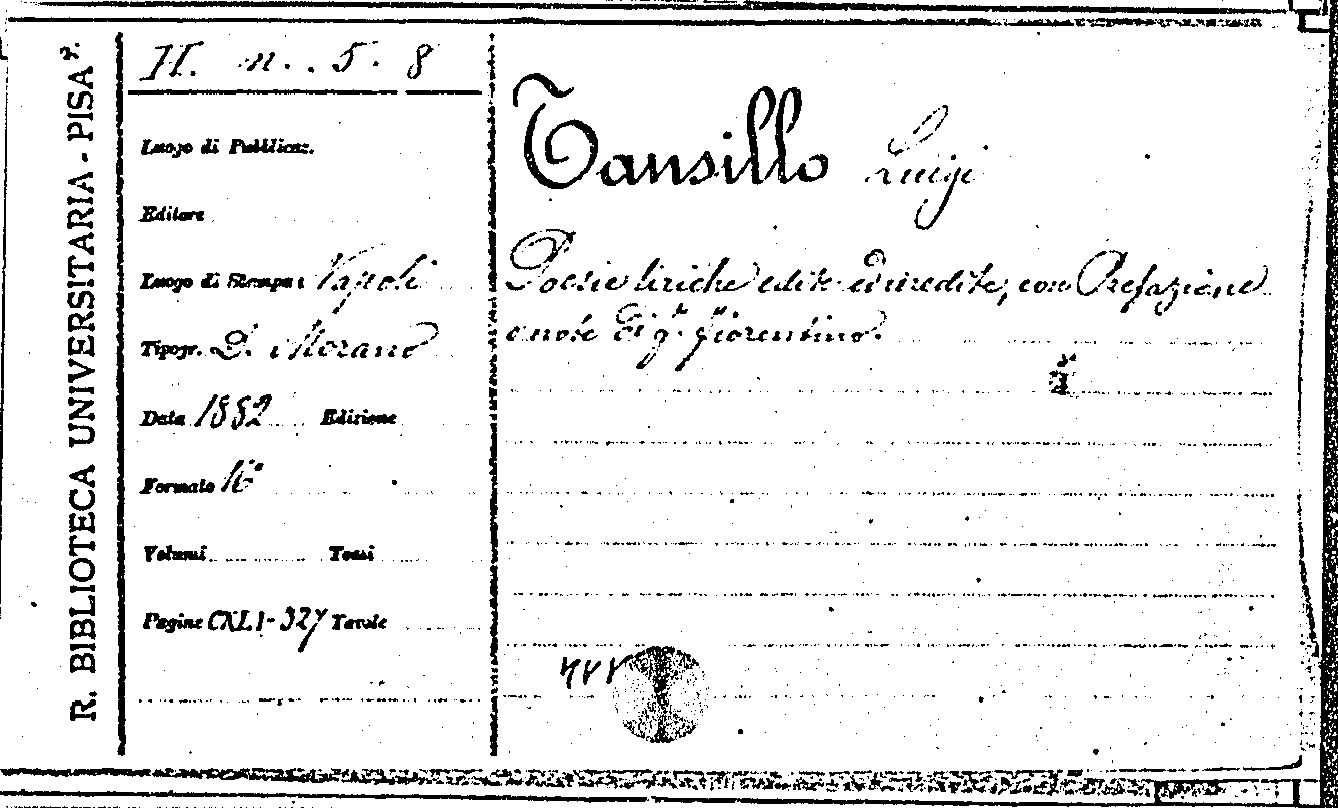 R. BIBLIOTECA UNIVERSITARIA - PISA
H. n. . 5. 8
Luogo di Pubblicaz.
Editore
Luogo di Stampa: Napoli
Tipogr. D. Morano
Data 1882 Edizione
Formato 16°
Volumi Tomi
Pagine CXLI-327 Tavole
Tansillo Luigi
Poesie liriche edite ed inedite, con Prefazione
e note di Fiorentino.